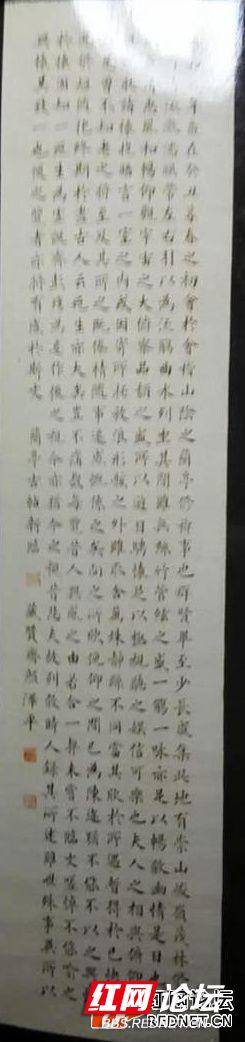 年歲在癸丑暮春之初會於會稽山陰之蘭亭修禊事也群賢畢至少長咸集此地有崇山峻嶺茂林修
流激湍映帶左右引以為流觴曲水列坐其次雖無絲竹管絃之盛一觴一詠亦足以暢敘幽情是日也
惠風和暢仰觀宇宙之大俯察品類之盛所以遊目騁懷足以極視聽之娛信可樂也夫人之相與俯仰
取諸懷抱晤言一室之內或因寄所托放浪形骸之外雖取舍萬殊靜躁不同當其欣於所遇暫得於己快
足曾不知老之將至及其所之既倦情隨事遷感慨係之矣向之所欣俛仰之間已為陳迹猶不能不以之興
短隨化終期於盡古人云死生亦大矣豈不痛哉每覽昔人興感之由若合一契未嘗不臨文嗟悼不能喻之
於懷固知一死生為虛誕齊彭殤為妄作後之視今亦猶今之視昔悲夫故列敘時人錄其所述雖世殊事異所以
興懷其致一也後之覽者亦將有感於斯文 蘭亭古帖新臨 藏寶齋顏澤平
红网论坛
BBS.REDNET.CN